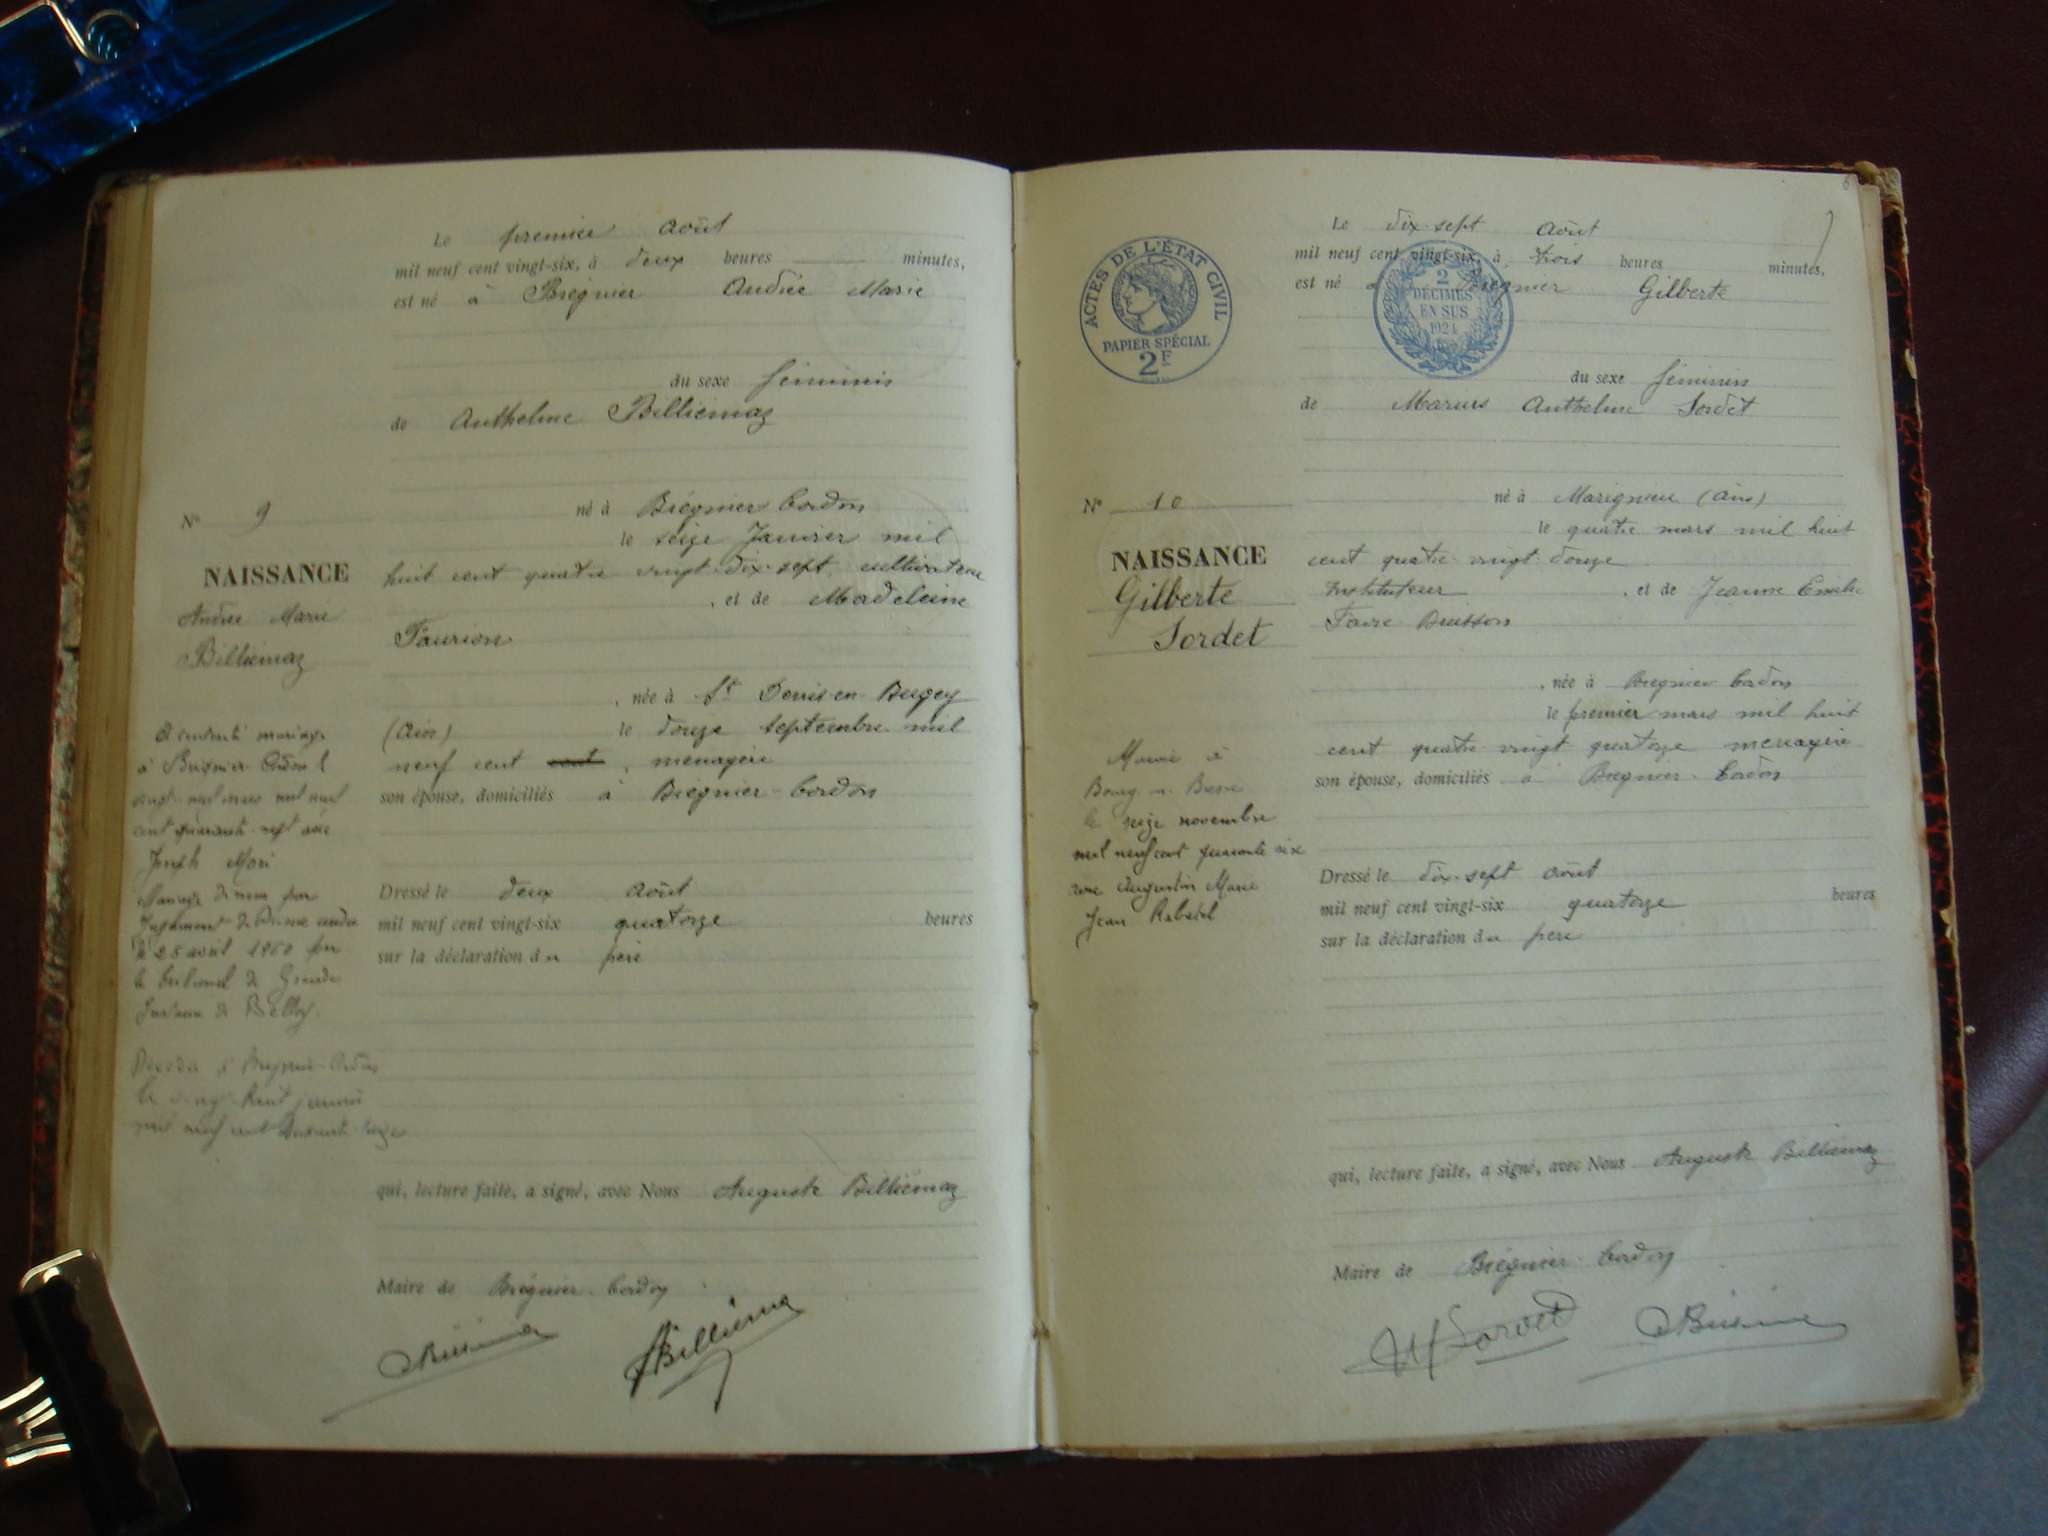 Le premier août
mil neuf cent vingt-six, à deux heures minutes,
est né à Brégnier Andrée Marie
du sexe féminin
de Anthelme Billiemaz
né à Brégnier Cordon
le seize Janvier mil
huit cent quatre vingt-dix-sept, cultivateur
, et de Madeleine
Faurion
, née à St Denis-en-Bugey
(Ain) le douze septembre mil
neuf cent cent, ménagère
son épouse, domiciliés à Brégnier-Cordon
Dressé le deux août
mil neuf cent vingt-six quatorze heures
sur la déclaration du père
qui, lecture faite, a signé, avec Nous Auguste Billiemaz
Maire de Brégnier-Cordon
Billiemaz
N° 9
NAISSANCE
Andrée Marie
Billiemaz
A contracté mariage
à Brégnier Cordon l
vingt mars mil neuf
cent quarante-sept avec
Joseph Mori
Mariage dissous par
Jugement de divorce rendu
le 25 avril 1960 par
le tribunal de Grande
Instance de Belley.
Décédée à Brégnier-Cordon
le vingt huit janvier
mil neuf cent
6
Le dix-sept août
mil neuf cent vingt-six, à trois heures minutes,
est né à Brégnier Gilberte
du sexe féminin
de Marius Anthelme Sordet
né à Marignieu (Ain)
le quatre mars mil huit
cent quatre-vingt douze
Instituteur , et de Jeanne Emilie
Favre Buisson
, née à Brégnier Cordon
le premier mars mil huit
cent quatre vingt quatorze ménagère
son épouse, domiciliés à Brégnier-Cordon
Dressé le dix-sept août
mil neuf cent vingt-six quatorze heures
sur la déclaration du père
qui, lecture faite, a signé, avec Nous Auguste Billiemaz
Maire de Brégnier-Cordon
M Sordet
ACTES DE L'ÉTAT CIVIL
PAPIER SPÉCIAL
2F
2
DÉCIMES
EN SUS
1924
N° 10
NAISSANCE
Gilberte
Sordet
Mariée à
Bourg en Bresse
le seize novembre
mil neuf cent quarante six
avec Augustin Marie
Jean